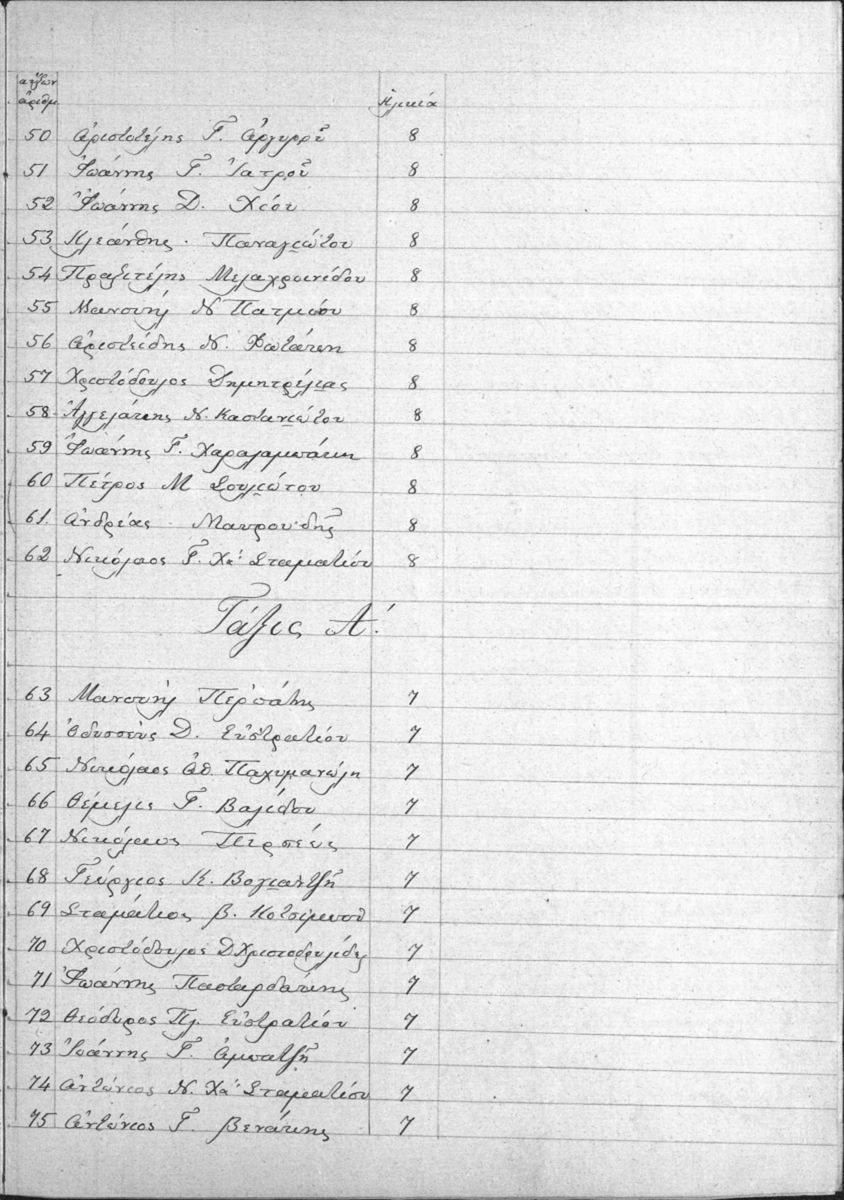 αὔξων
ἀριθμ.
Ἡλικία
50 Ἀριστοτέλης Γ. Ἀργυροῦ 8
51 Ἰωάννης Γ. Ἰατροῦ 8
52 Ἰωάννης Δ. Χίου 8
53 Κλεάνθης Παναγιώτου 8
54 Πραξιτέλης Μελαχροινίδου 8
55 Μανουὴλ Ν Πατμίου 8
56 Ἀριστείδης Ν. Φωτάκη 8
57 Χριστόδουλος Δημητρέλιας 8
58 Ἀγγελάκης Ν. Καστανιώτου 8
59 Ἰωάννης Γ. Χαραλαμπάκη 8
60 Πέτρος Μ Σουλιώτου 8
61. Ἀνδρέας Μαυρουδῆς 8
62 Νικόλαος Γ. Χ" Σταματίου 8
Τάξις Α΄.
63 Μανουὴλ Περσάκης 7
64 Ὀδυσσεὺς Δ. Εὐστρατίου 7
65 Νικόλαος Ἀθ. Παχυμανώλη 7
66 Θέμελις Γ. Βαλίδου 7
67 Νικόλαος Περσεύς 7
68 Γεώργιος Κ. Βογιατζῆ 7
69 Σταμάτιος Β. 7
70 Χριστόδουλος Δ Χριστοδουλίδης 7
71 Ἰωάννης Πασταρδάκης 7
72 Θεόδωρος Πλ. Εὐστρατίου 7
73 Ἰωάννης Γ. Ἀμπατζῆ 7
74 Ἀντώνιος Ν. Χ" Σταματίου 7
75 Ἀντώνιος Γ. Βενάκης 7